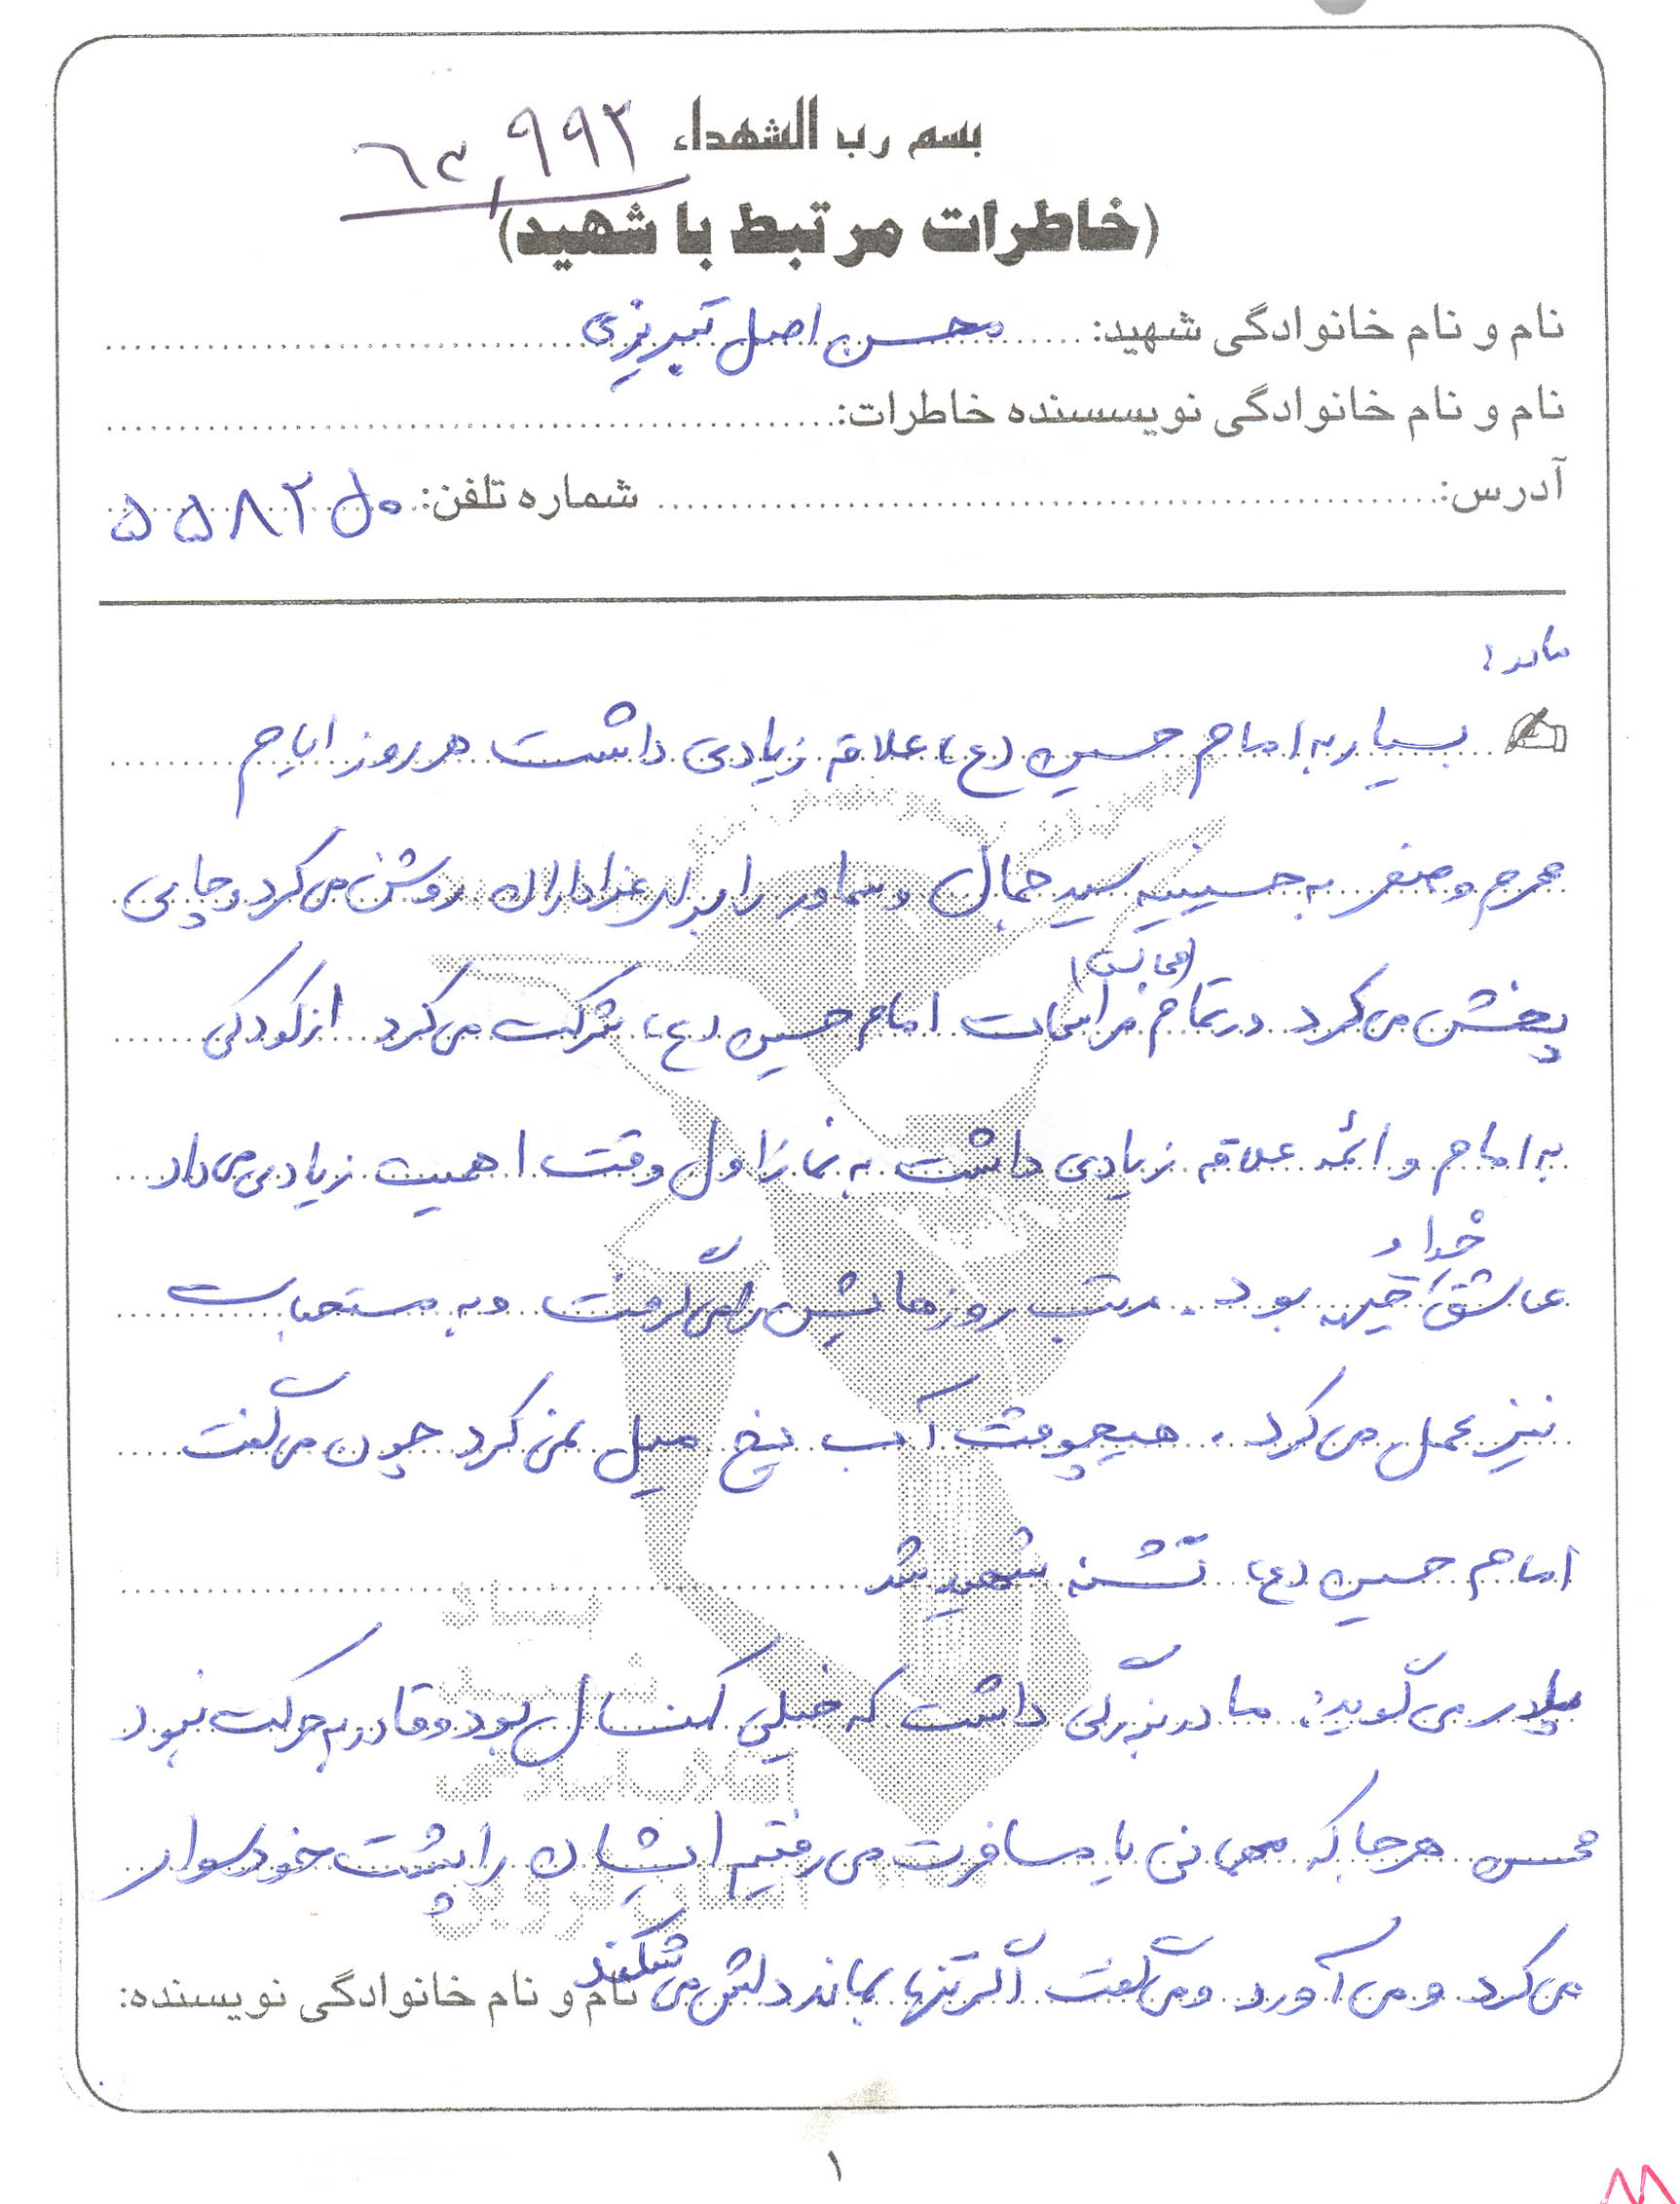 بسم رب الشهداء
۶۳,۹۹۲
(خاطرات مرتبط با شهید)
نام و نام خانوادگی شهید: محسن اصل تبریزی
نام و نام خانوادگی نویسنده خاطرات:
آدرس: شماره تلفن: ۵۵۸۲
مادر:
بسیار به امام حسین (ع) علاقه زیادی داشت هر روز ایام
محرم و صفر به حسینیه سید جمال و سماور را برای عزاداران روشن می کرد و چایی
(مجالس)
پخش می کرد در تمام مراسمات امام حسین (ع) شرکت می کرد از کودکی
به امام و ائمه علاقه زیادی داشت به نماز اول وقت اهمیت زیادی می داد
خدا و
عاشق بود. مرتب روزهایش را می گرفت و به مستحبات
نیز عمل می کرد. هیچوقت آب یخ میل نمی کرد چون می گفت
امام حسین (ع) تشنه شهید شد
پدر می گوید: مادربزرگی داشت که خیلی کهنسال بود و قادر به حرکت نبود
محسن هر جا که مهمانی یا مسافرت می رفتیم ایشان را پشت خود سوار
می کرد و می آورد و می گفت اگر تنها بماند دلش می شکند
نام و نام خانوادگی نویسنده:
بنیاد
شهید
انقلاب اسلامی
استان قزوین
۱